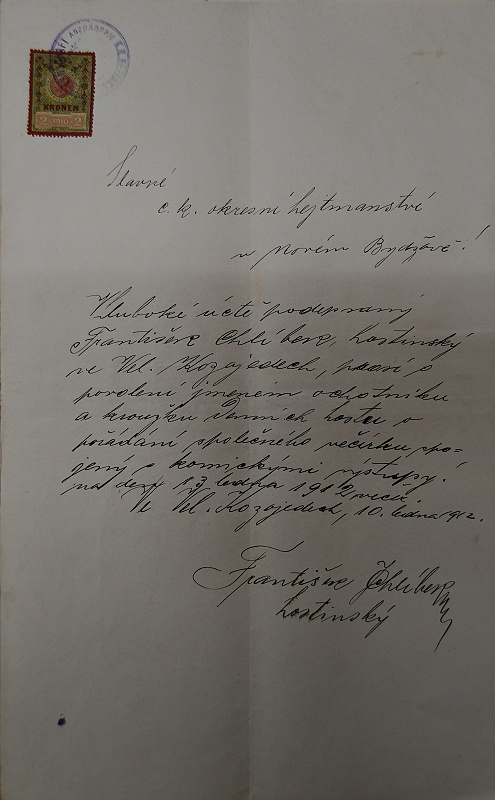 KRONEN
2 1910 2
Slavné
c. k. okresní hejtmanství
v Novém Bydžově!
V hluboké úctě podepsaný
František Chlíbek, hostinský
ve Vel. Kozojedech, prosí o
povolení jménem ochotníku
a kroužku denních hostu o
pořádání společného večírku spo-
jený s komickými výstupy.
na den 13 ledna 1912
Ve Vel. Kozojedech, 10. ledna 1912.
František Chlíbek
hostinský